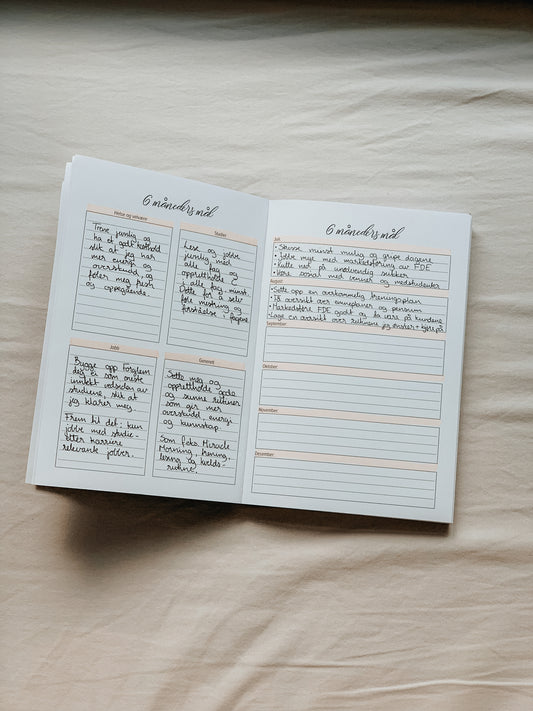 6 måneders mål
Helse og velvære
Trene jevnlig og
ha et godt kosthold
slik at jeg har
mer energi og
overskudd, og
føler meg frisk
og oppegående.
Studier
Lese og jobbe
jevnlig med
alle fag og
opprettholde C
i alle fag minst.
Dette for å selv
føle mestring og
forståelse i fagene.
Jobb
Bygge opp Forglem
deg ei som eneste
inntekt ved siden av
studiene, slik at
jeg klarer meg.
Frem til det: kun
jobbe med studie-
etter karriere
relevante jobber.
Generelt
Sette meg og
opprettholde gode
og sunne rutiner
som gir mer
overskudd, energi
og kunnskap.
Som f.eks. Miracle
Morning, trening,
lesing og kvelds-
rutine.
6 måneders mål
Juli:
• Stresse minst mulig og gripe dagene
• Jobbe mye med markedsføring av FDE
• Kutte ned på unødvendig sukker
• Være sosial med venner og medstudenter
August:
• Sette opp en overkommelig treningsplan
• Få oversikt over emneplaner og pensum
• Markedsføre FDE godt og ta vare på kundene
• Lage en oversikt over rutinene jeg ønsker +
September:
Oktober:
November:
Desember: